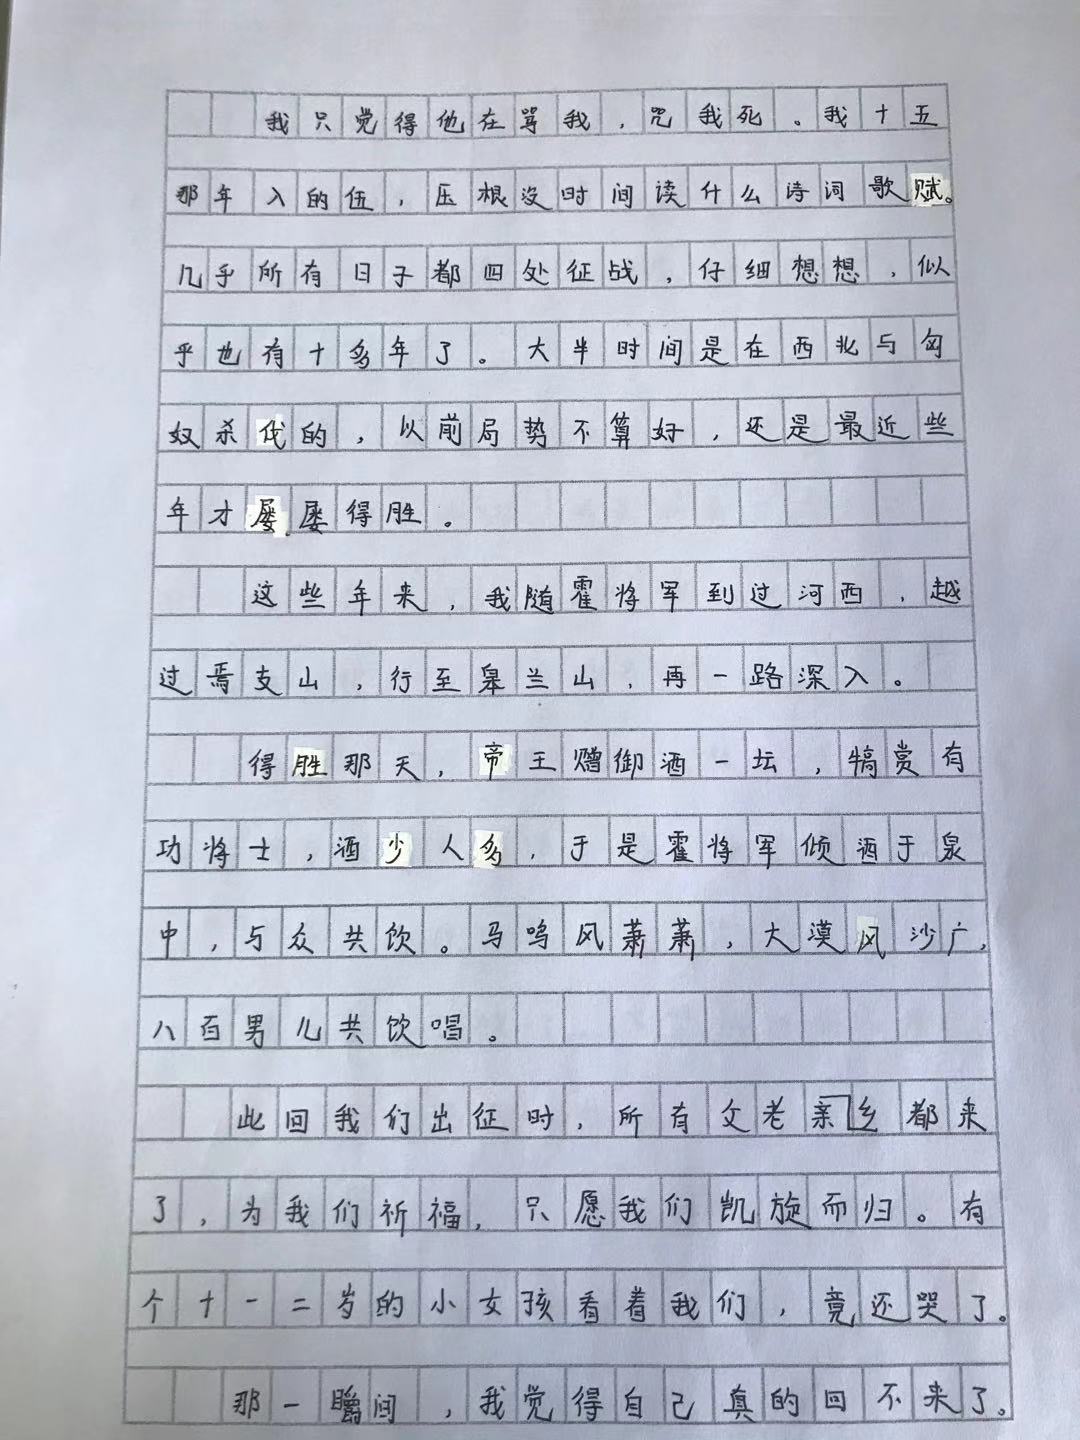 我只觉得他在骂我，咒我死。我十五
那年入的伍，压根没时间读什么诗词歌赋。
几乎所有日子都四处征战，仔细想想，似
乎也有十多年了。大半时间是在西北与匈
奴杀伐的，以前局势不算好，还是最近些
年才屡屡得胜。
这些年来，我随霍将军到过河西，越
过焉支山，行至皋兰山，再一路深入。
得胜那天，帝王赠御酒一坛，犒赏有
功将士，酒少人多，于是霍将军倾酒于泉
中，与众共饮。马鸣风萧萧，大漠风沙广，
八百男儿共饮唱。
此回我们出征时，所有父老亲乡都来
了，为我们祈福，只愿我们凯旋而归。有
个十一二岁的小女孩看着我们，竟还哭了。
那一瞬间，我觉得自己真的回不来了。